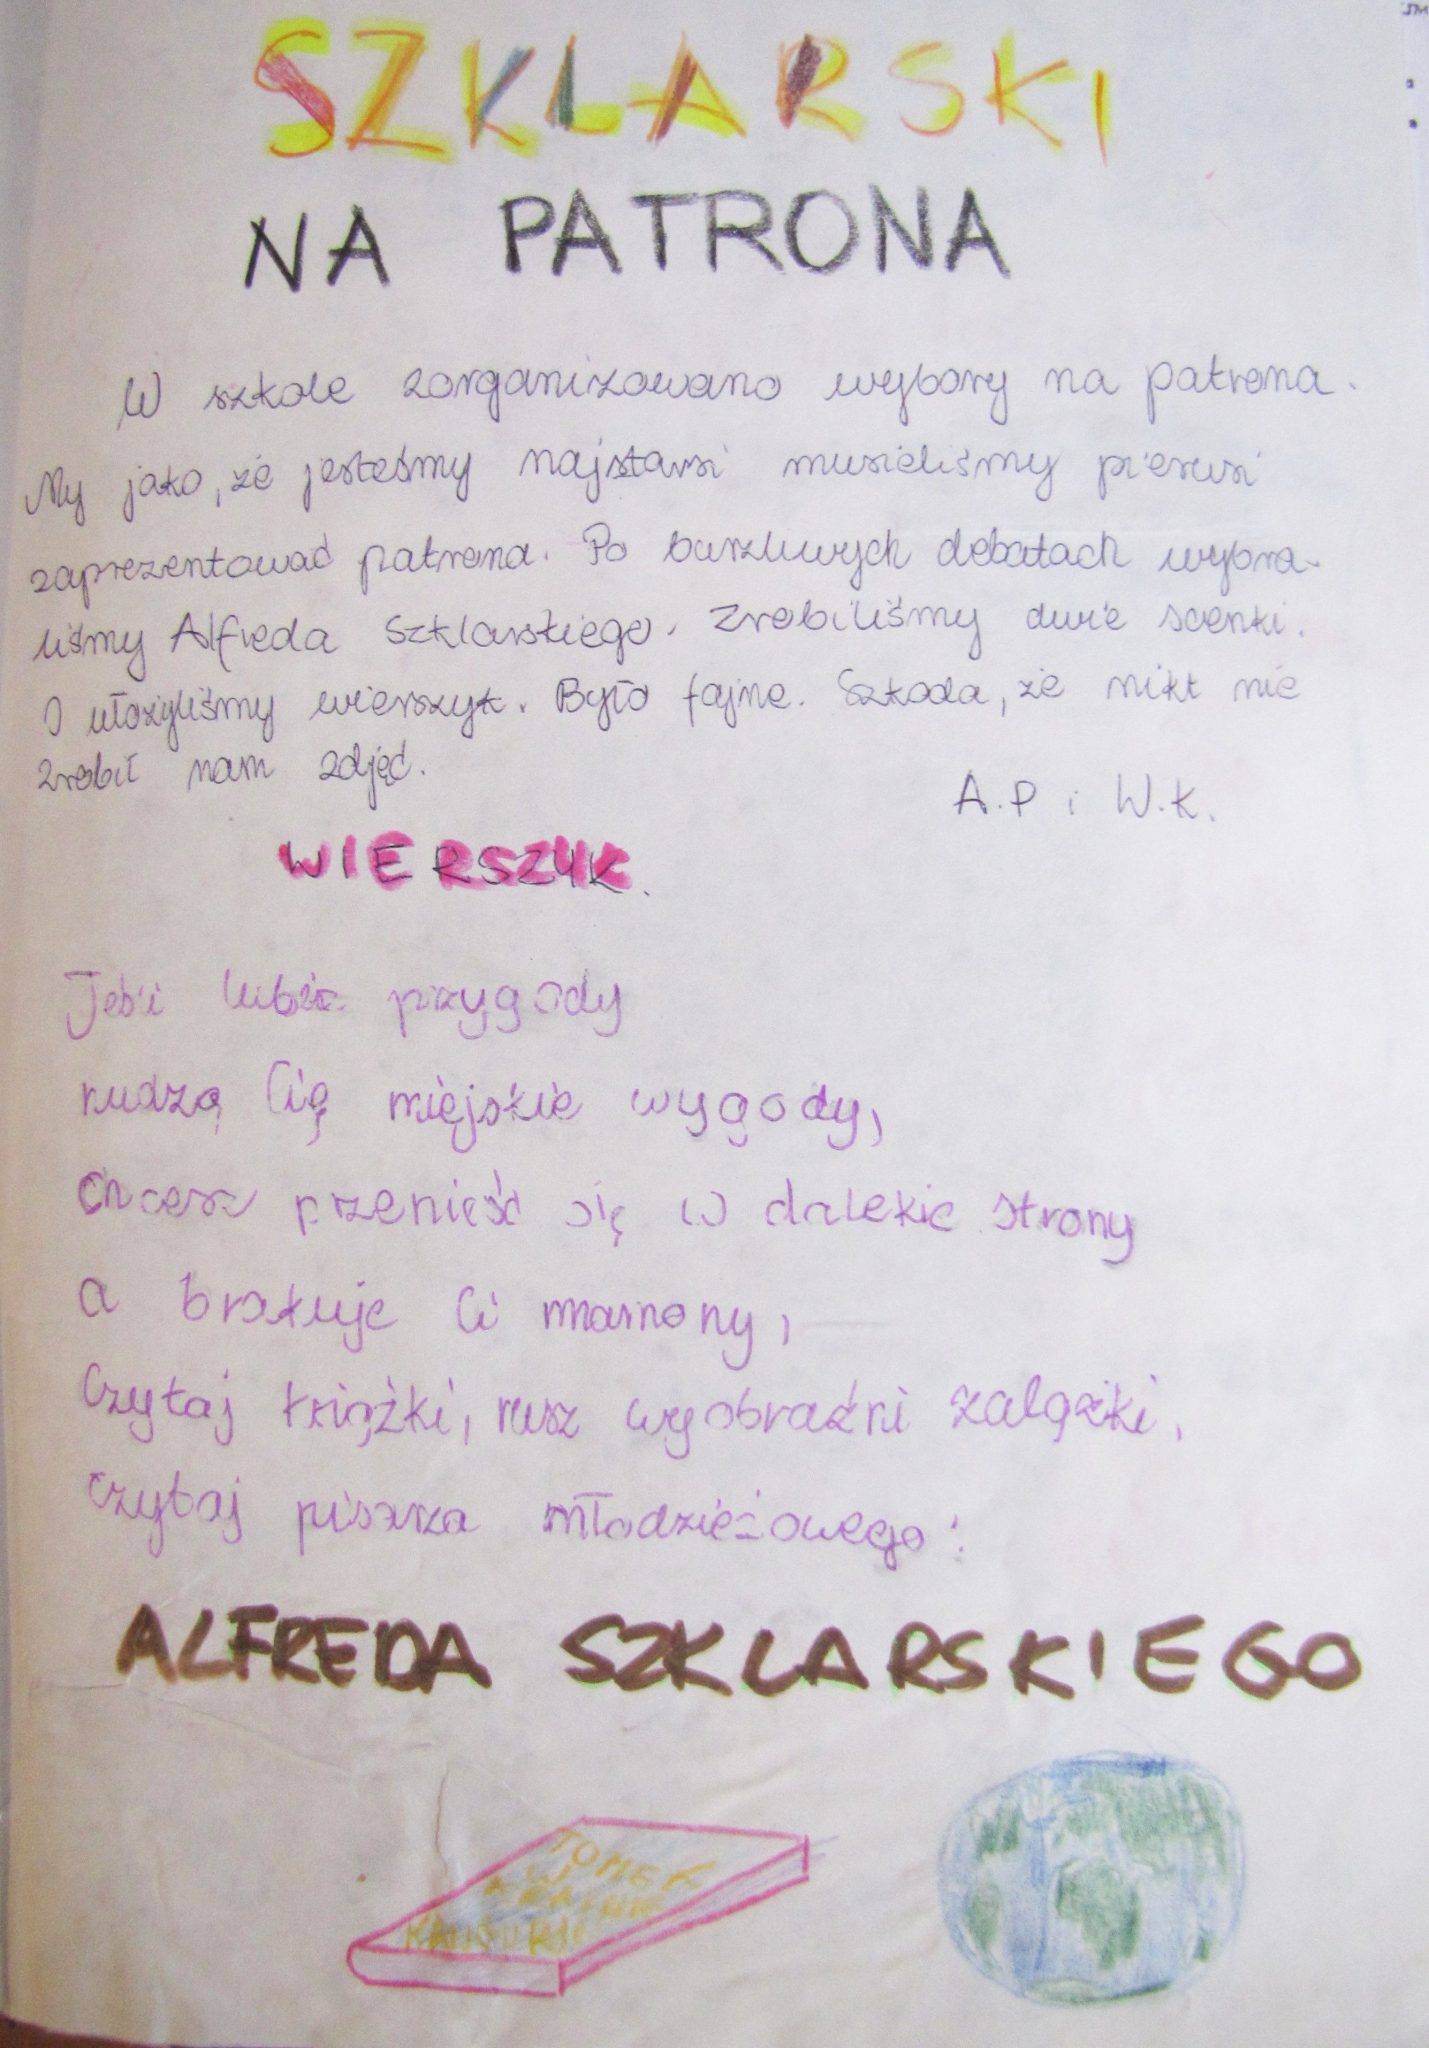 SZKLARSKI
NA PATRONA
W szkole zorganizowano wybory na patrona.
My jako, że jesteśmy najstarsi musieliśmy pierwsi
zaprezentować patrona. Po burzliwych debatach wybra-
liśmy Alfreda Szklarskiego. Zrobiliśmy dwie scenki.
I ułożyliśmy wierszyk. Było fajne. Szkoda, że nikt nie
zrobił nam zdjęć.
A.P i W.K.
WIERSZYK.
Jeśli lubisz przygody
nudzą Cię miejskie wygody,
Chcesz przenieść się w dalekie strony
a brakuje Ci mamony,
Czytaj książki, rusz wyobraźni zalążki,
Czytaj pisarza młodzieżowego:
ALFREDA SZKLARSKIEGO
TOMEK
W
KRAINIE
KANGURÓW